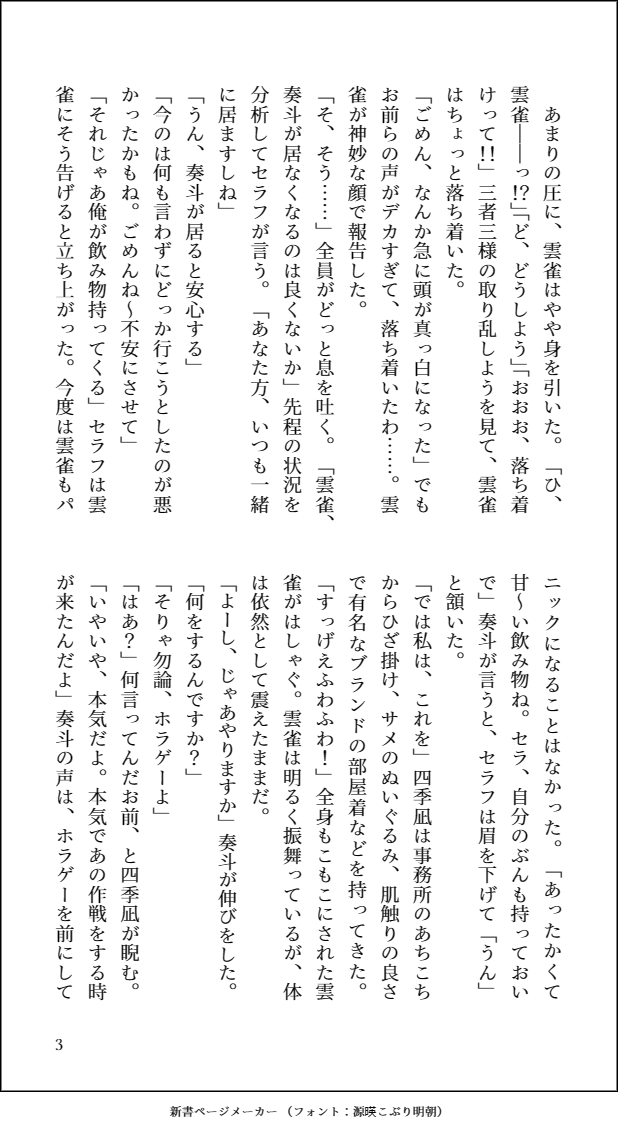 あまりの圧に、雲雀はやや身を引いた。「ひ、
雲雀――っ!?」「ど、どうしよう」「おおお、落ち着
けって!!」三者三様の取り乱しようを見て、雲雀
はちょっと落ち着いた。
「ごめん、なんか急に頭が真っ白になった」でも
お前らの声がデカすぎて、落ち着いたわ……。雲
雀が神妙な顔で報告した。
「そ、そう……」全員がどっと息を吐く。「雲雀、
奏斗が居なくなるのは良くないか」先程の状況を
分析してセラフが言う。「あなた方、いつも一緒
に居ますしね」
「うん、奏斗が居ると安心する」
「今のは何も言わずにどっか行こうとしたのが悪
かったかもね。ごめんね～不安にさせて」
「それじゃあ俺が飲み物持ってくる」セラフは雲
雀にそう告げると立ち上がった。今度は雲雀もパ
ニックになることはなかった。「あったかくて
甘～い飲み物ね。セラ、自分のぶんも持っておい
で」奏斗が言うと、セラフは眉を下げて「うん」
と頷いた。
「では私は、これを」四季凪は事務所のあちこち
からひざ掛け、サメのぬいぐるみ、肌触りの良さ
で有名なブランドの部屋着などを持ってきた。
「すっげえふわふわ！」全身もこもこにされた雲
雀がはしゃぐ。雲雀は明るく振舞っているが、体
は依然として震えたままだ。
「よーし、じゃあやりますか」奏斗が伸びをした。
「何をするんですか？」
「そりゃ勿論、ホラゲーよ」
「はあ？」何言ってんだお前、と四季凪が睨む。
「いやいや、本気だよ。本気であの作戦をする時
が来たんだよ」奏斗の声は、ホラゲーを前にして
3
新書ページメーカー（フォント：源暎こぶり明朝）